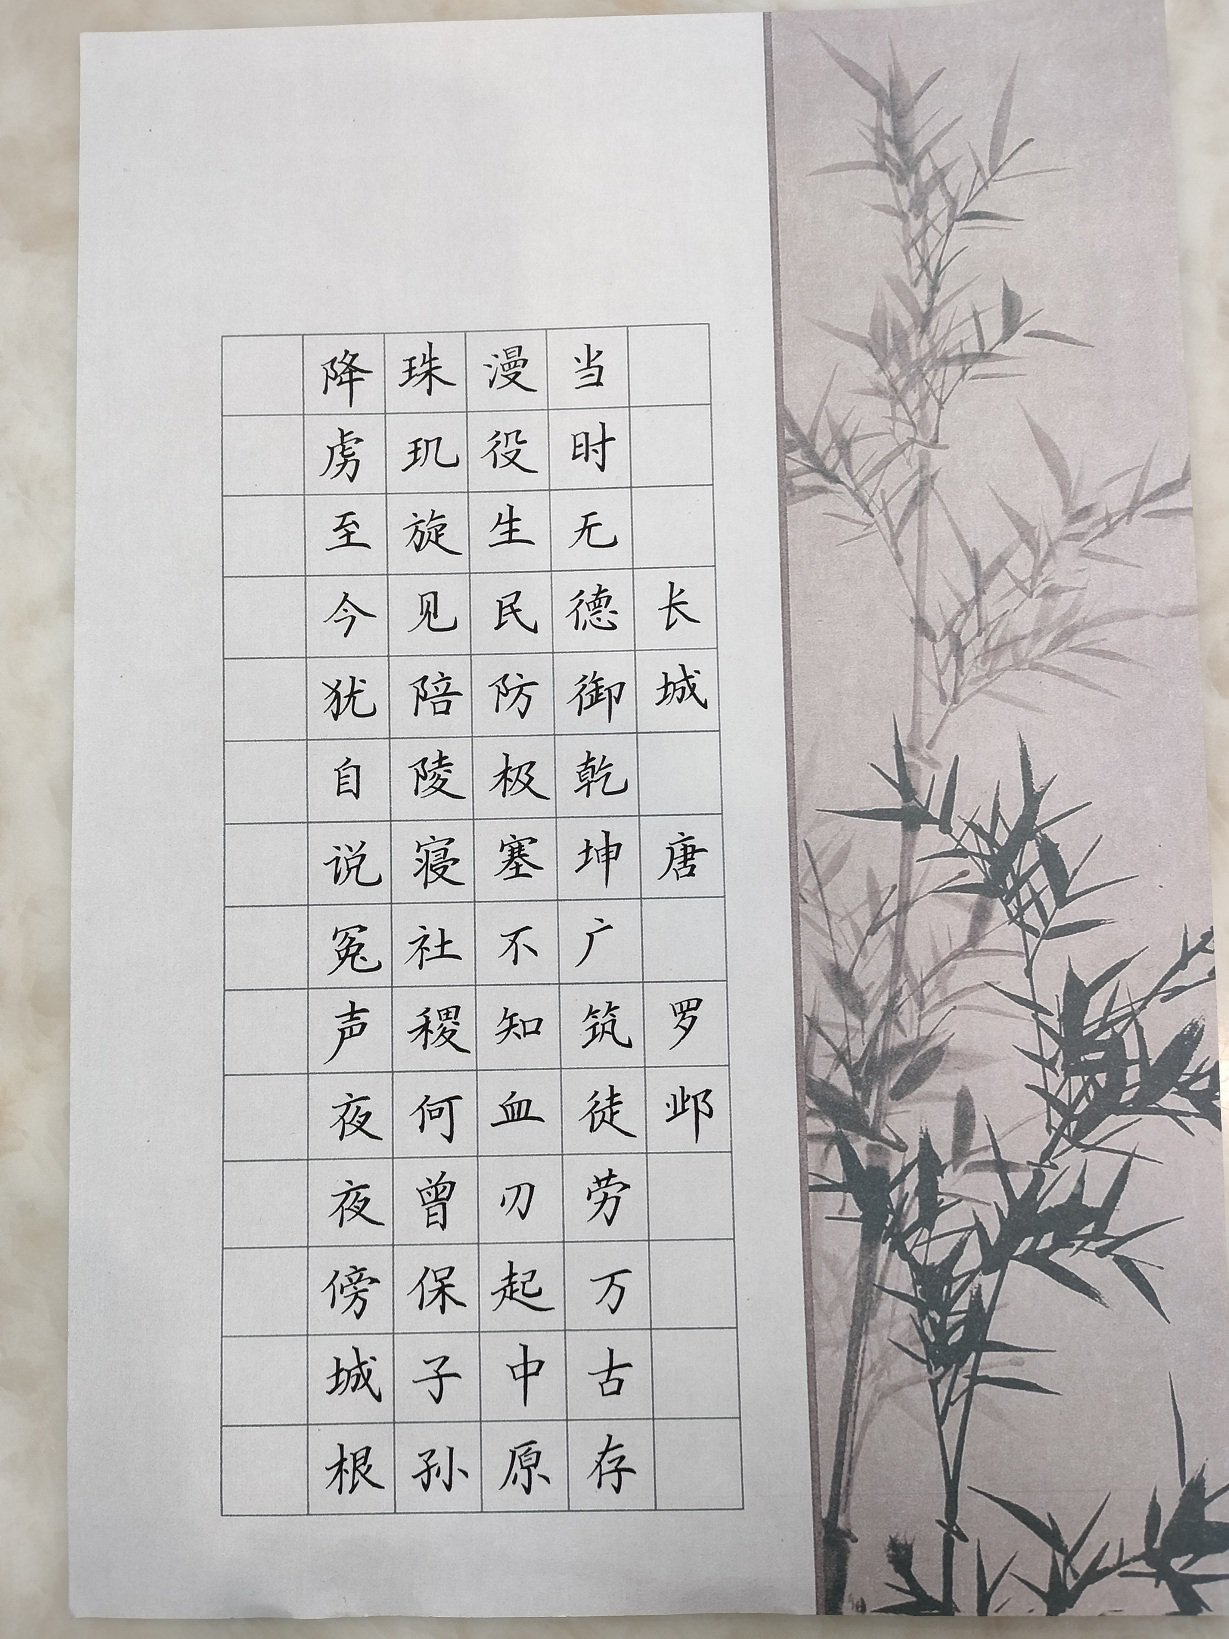 长城 唐 罗邺
当时无德御乾坤广筑徒劳万古存
漫役生民防极塞不知血刃起中原
珠玑旋见陪陵寝社稷何曾保子孙
降虏至今犹自说冤声夜夜傍城根